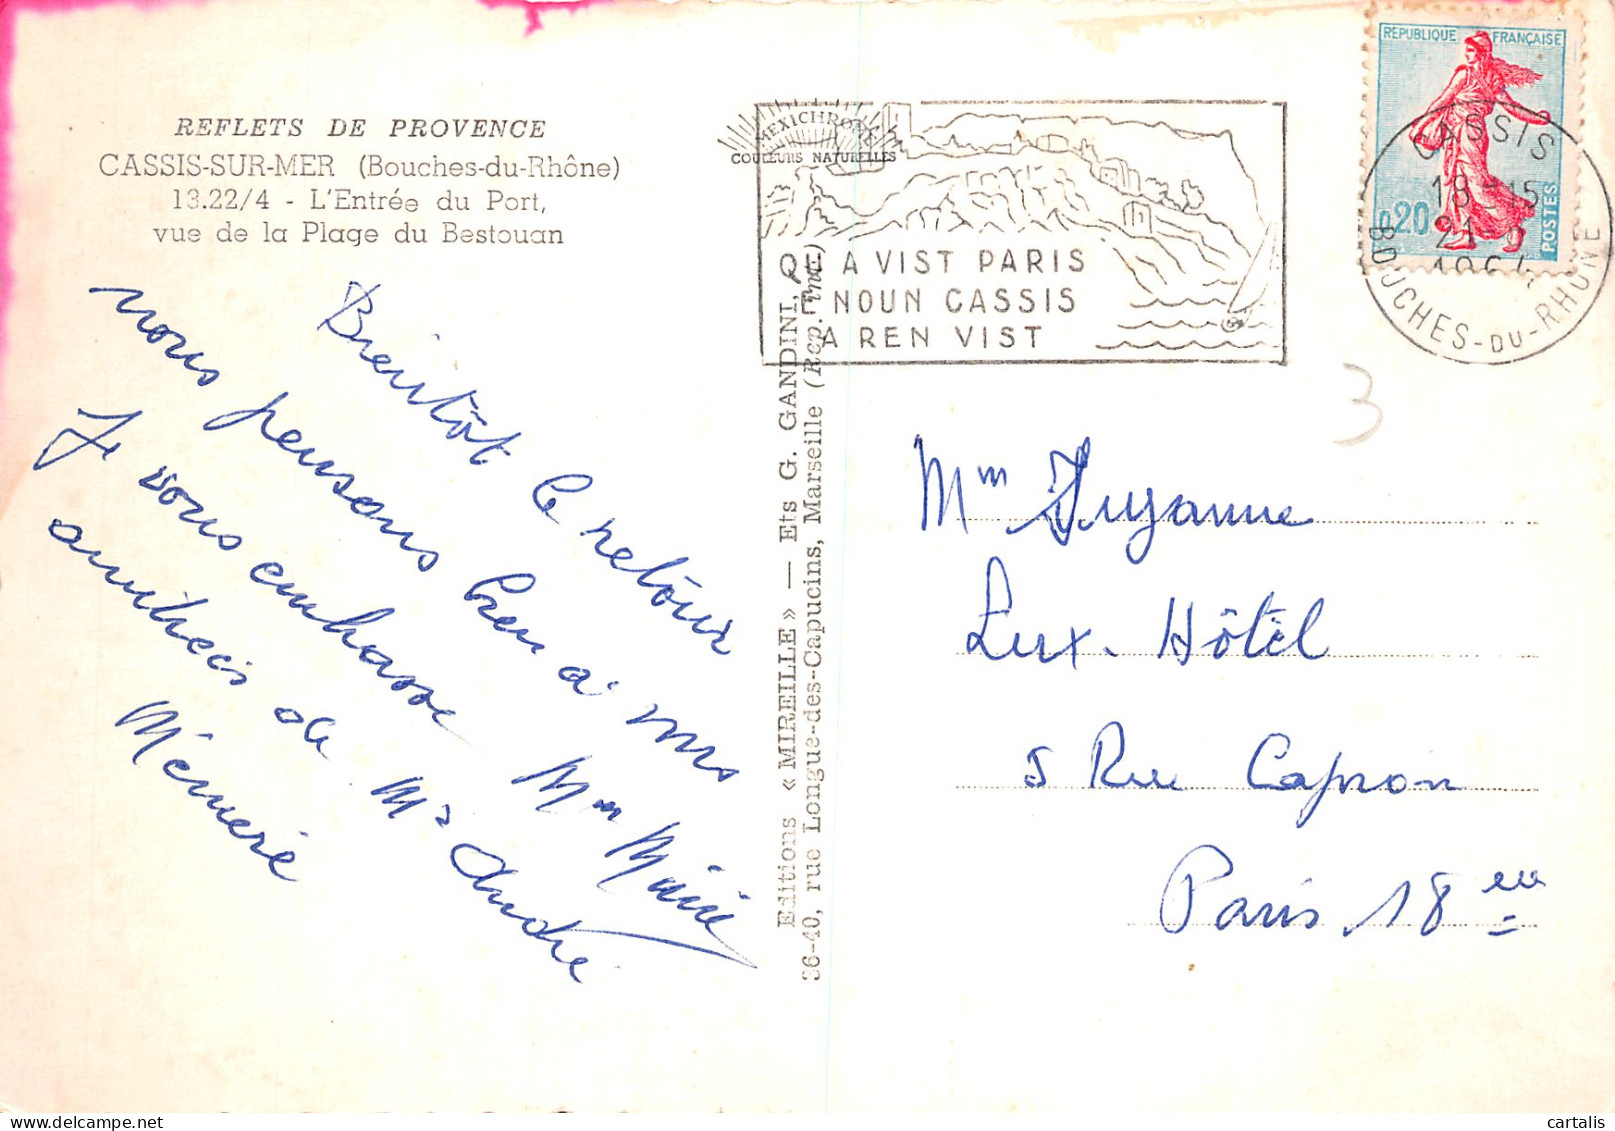 REFLETS DE PROVENCE
CASSIS-SUR-MER (Bouches-du-Rhône)
13.22/4 - L'Entrée du Port,
vue de la Plage du Bestouan
Bientôt le retour
nous pensons bien à vous
Je vous embrasse Mme
amitiés de Mr André
Mémère
Editions « MIREILLE » — Ets G. GANDINI,
36-40, rue Longue-des-Capucins, Marseille (Rep. int.)
MEXICHROME
COULEURS NATURELLES
QU A VIST PARIS
E NOUN CASSIS
A REN VIST
REPUBLIQUE FRANÇAISE
0,20
POSTES
CASSIS
18-15
21
196
BOUCHES-DU-RHONE
3
Mm Suzanne
Lux. Hôtel
5 Rue Capron
Paris 18 eme
cartalis